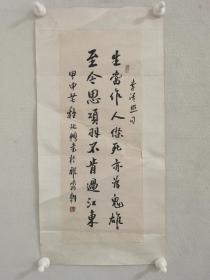 李清照句
生當作人傑死亦為鬼雄
至今思項羽不肯過江東
甲申芒種